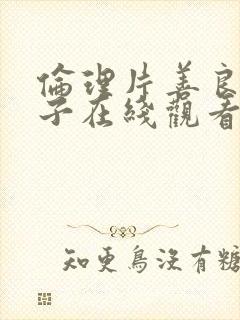 倫理片善良
子在綫觀看
知更鳥沒有糖